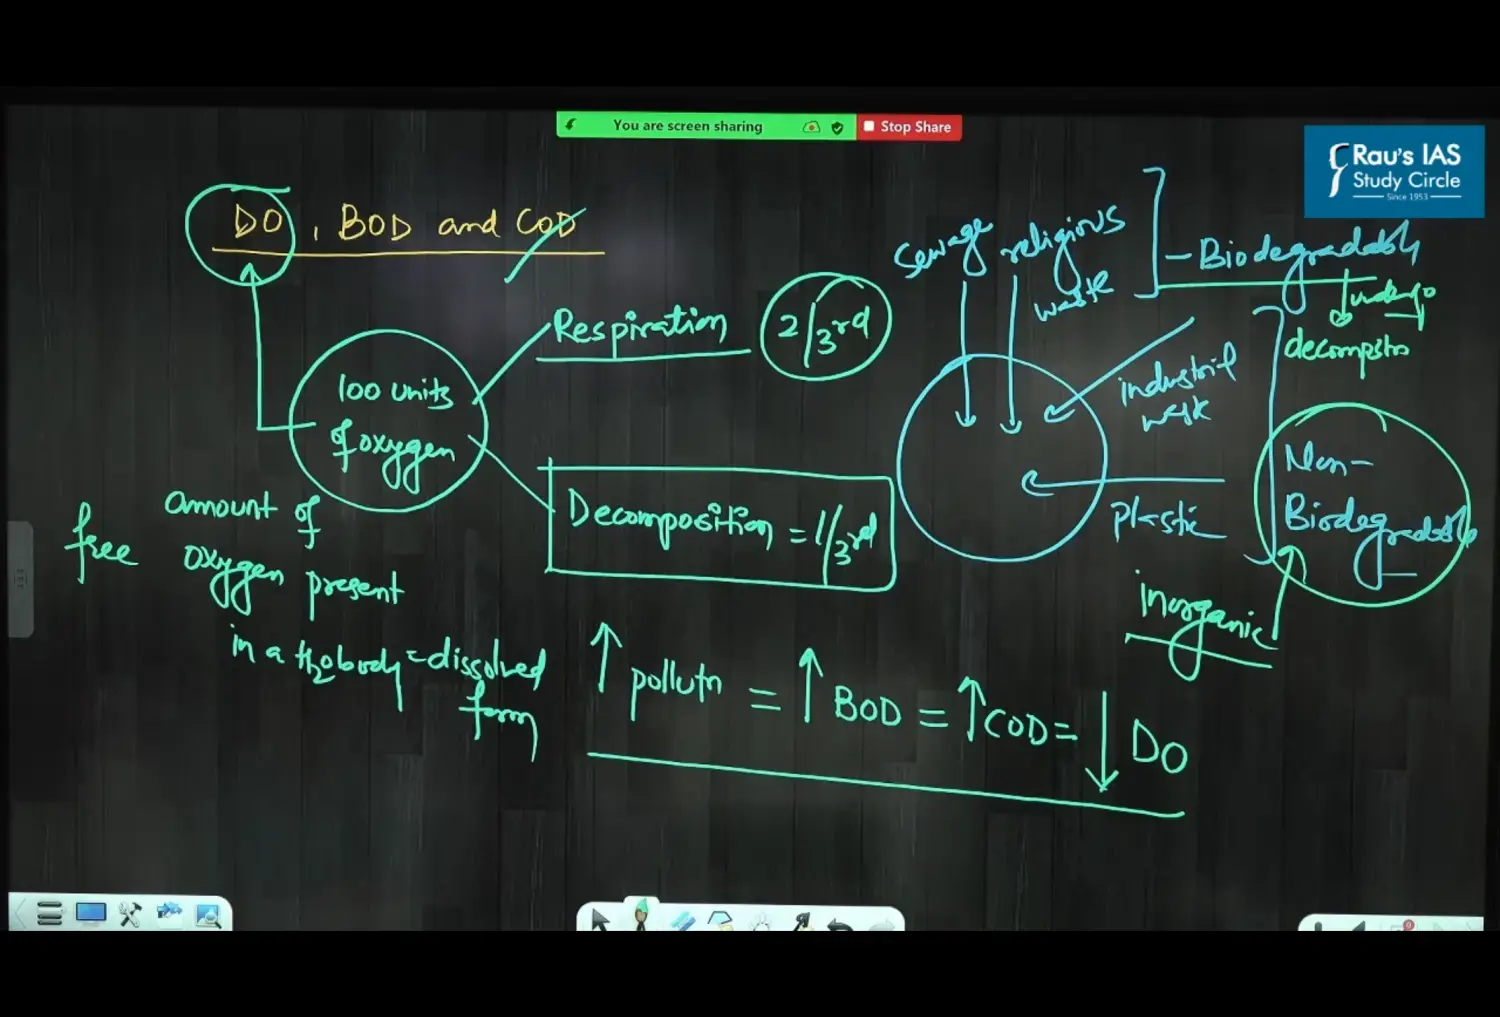 You are screen sharing
Stop Share
Rau's IAS
Study Circle
Since 1953
DO, BOD and COD
100 units
of oxygen
Respiration
2/3rd
Decomposition = 1/3rd
free
amount of
oxygen present
in a H2O body = dissolved
form
sewage
religious
waste
- Biodegradable
undergo
industrial
plastic
Non-
Biodegradable
inorganic
↑ pollutn = ↑ BOD = ↑ COD = ↓ DO